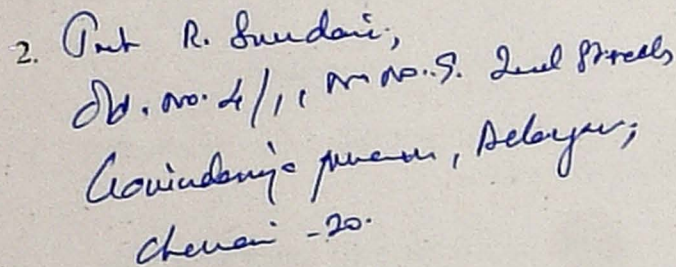 2. Smt R. Sundari,
Old. No. 4/1, N No. 9. 2nd Streets
Govindaraja puram, Adayar,
Chennai - 20.